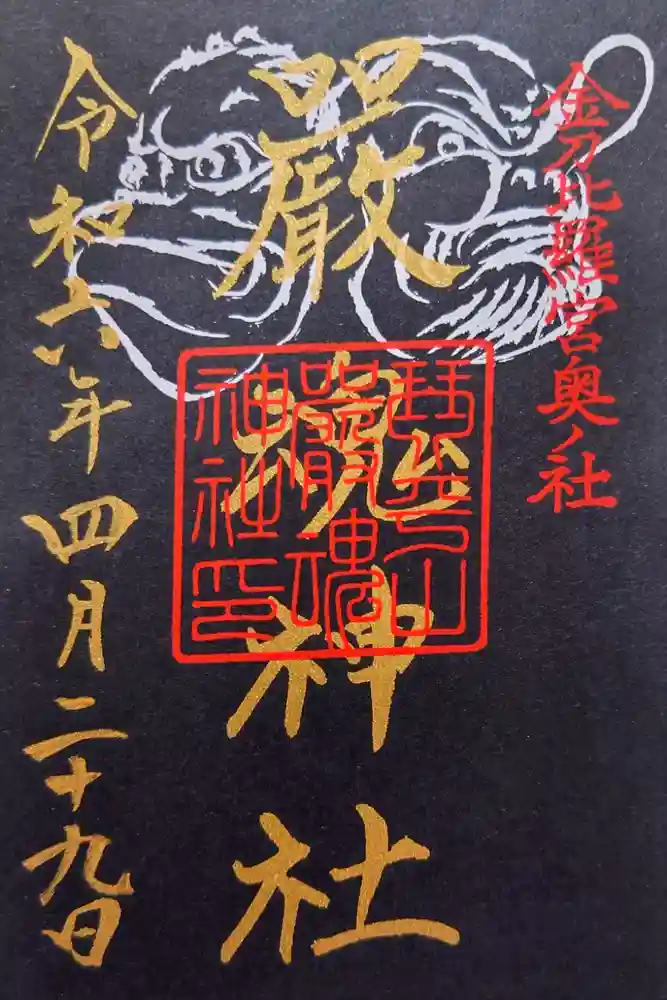 金刀比羅宮奥ノ社
嚴魂神社
琴平山
嚴魂
神社印
令和六年四月二十九日